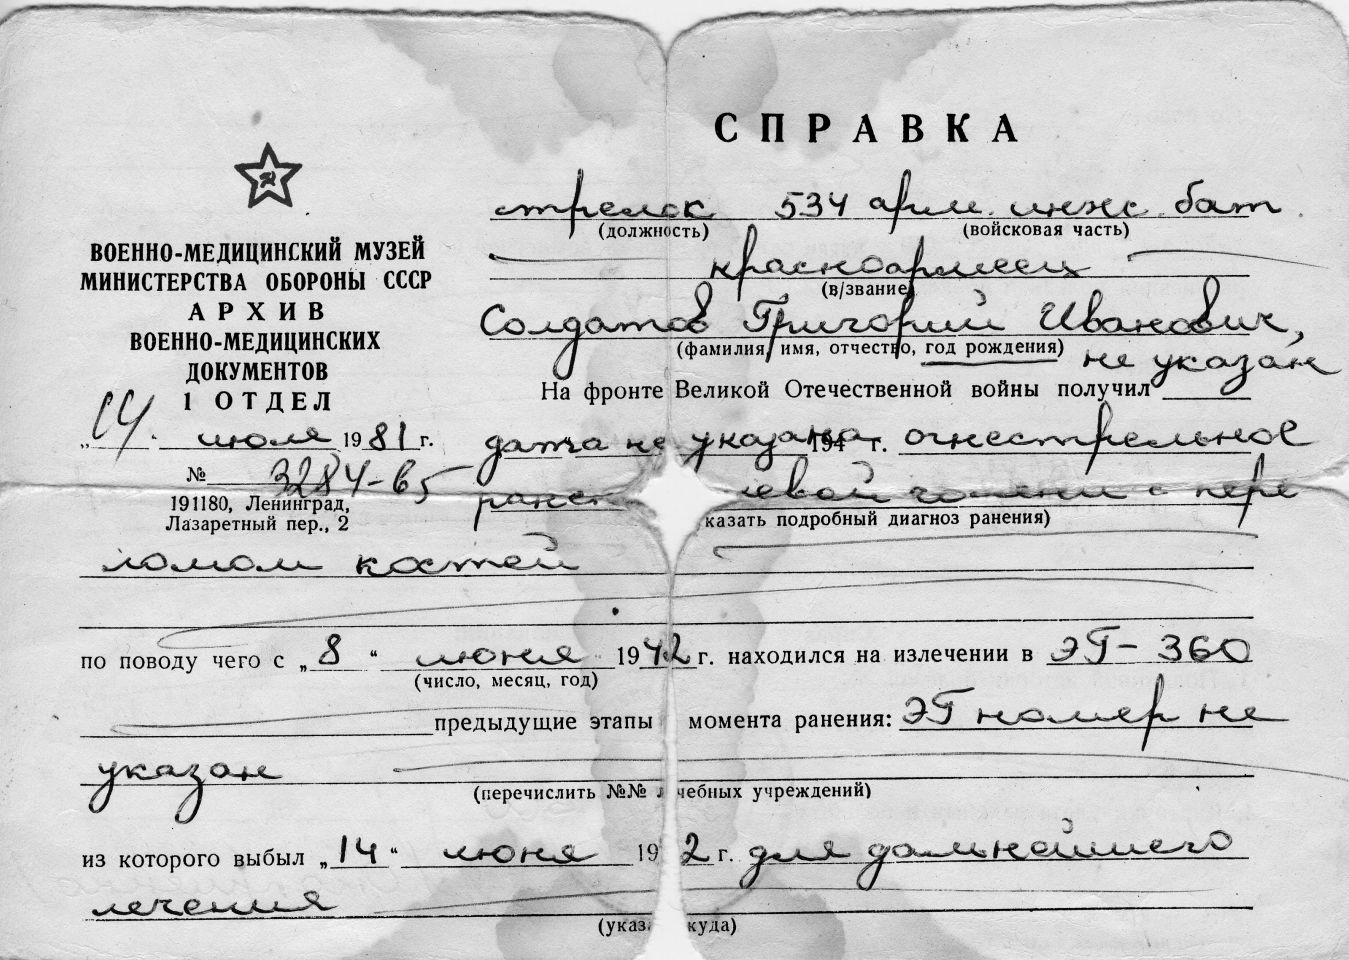 СПРАВКА
стрелок 534 арм. инж. бат.
(должность) (войсковая часть)
красноармеец
(в/звание)
Солдатов Григорий Иванович,
(фамилия, имя, отчество, год рождения) не указан
На фронте Великой Отечественной войны получил
дата не указана 194 г. огнестрельное
ранен левой голени с пере
казать подробный диагноз ранения)
ВОЕННО-МЕДИЦИНСКИЙ МУЗЕЙ
МИНИСТЕРСТВА ОБОРОНЫ СССР
АРХИВ
ВОЕННО-МЕДИЦИНСКИХ
ДОКУМЕНТОВ
1 ОТДЕЛ
„14. июля 1981 г.
№ 3284-б5
191180, Ленинград,
Лазаретный пер., 2
ломом костей
по поводу чего с „8“ июня 1942 г. находился на излечении в ЭГ-360
(число, месяц, год)
предыдущие этапы момента ранения: ЭГ номер не
указан
(перечислить №№ лечебных учреждений)
из которого выбыл „14“ июня 19 2 г. для дальнейшего
лечения
(указ куда)